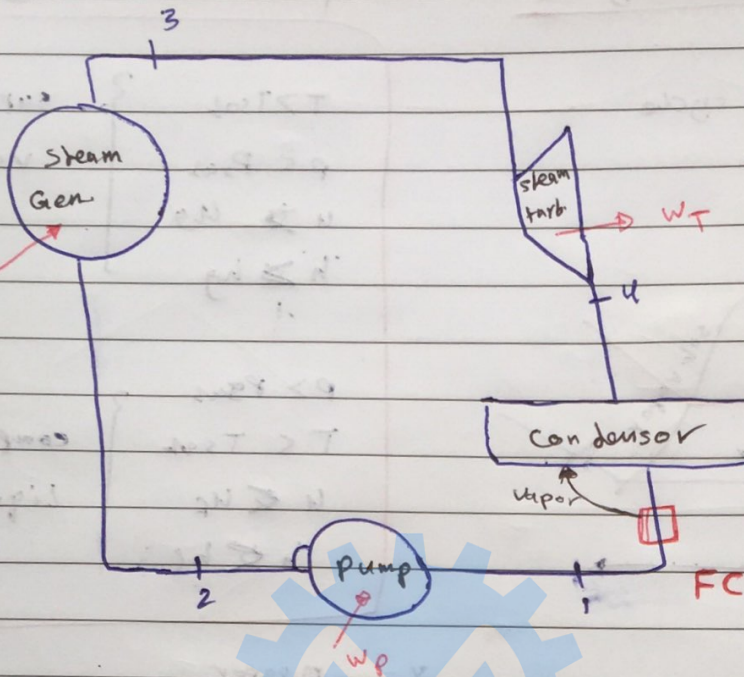 3
Steam
Gen
steam
turb.
W_T
4
Condensor
Vapor
Pump
2
1
FC
W_P